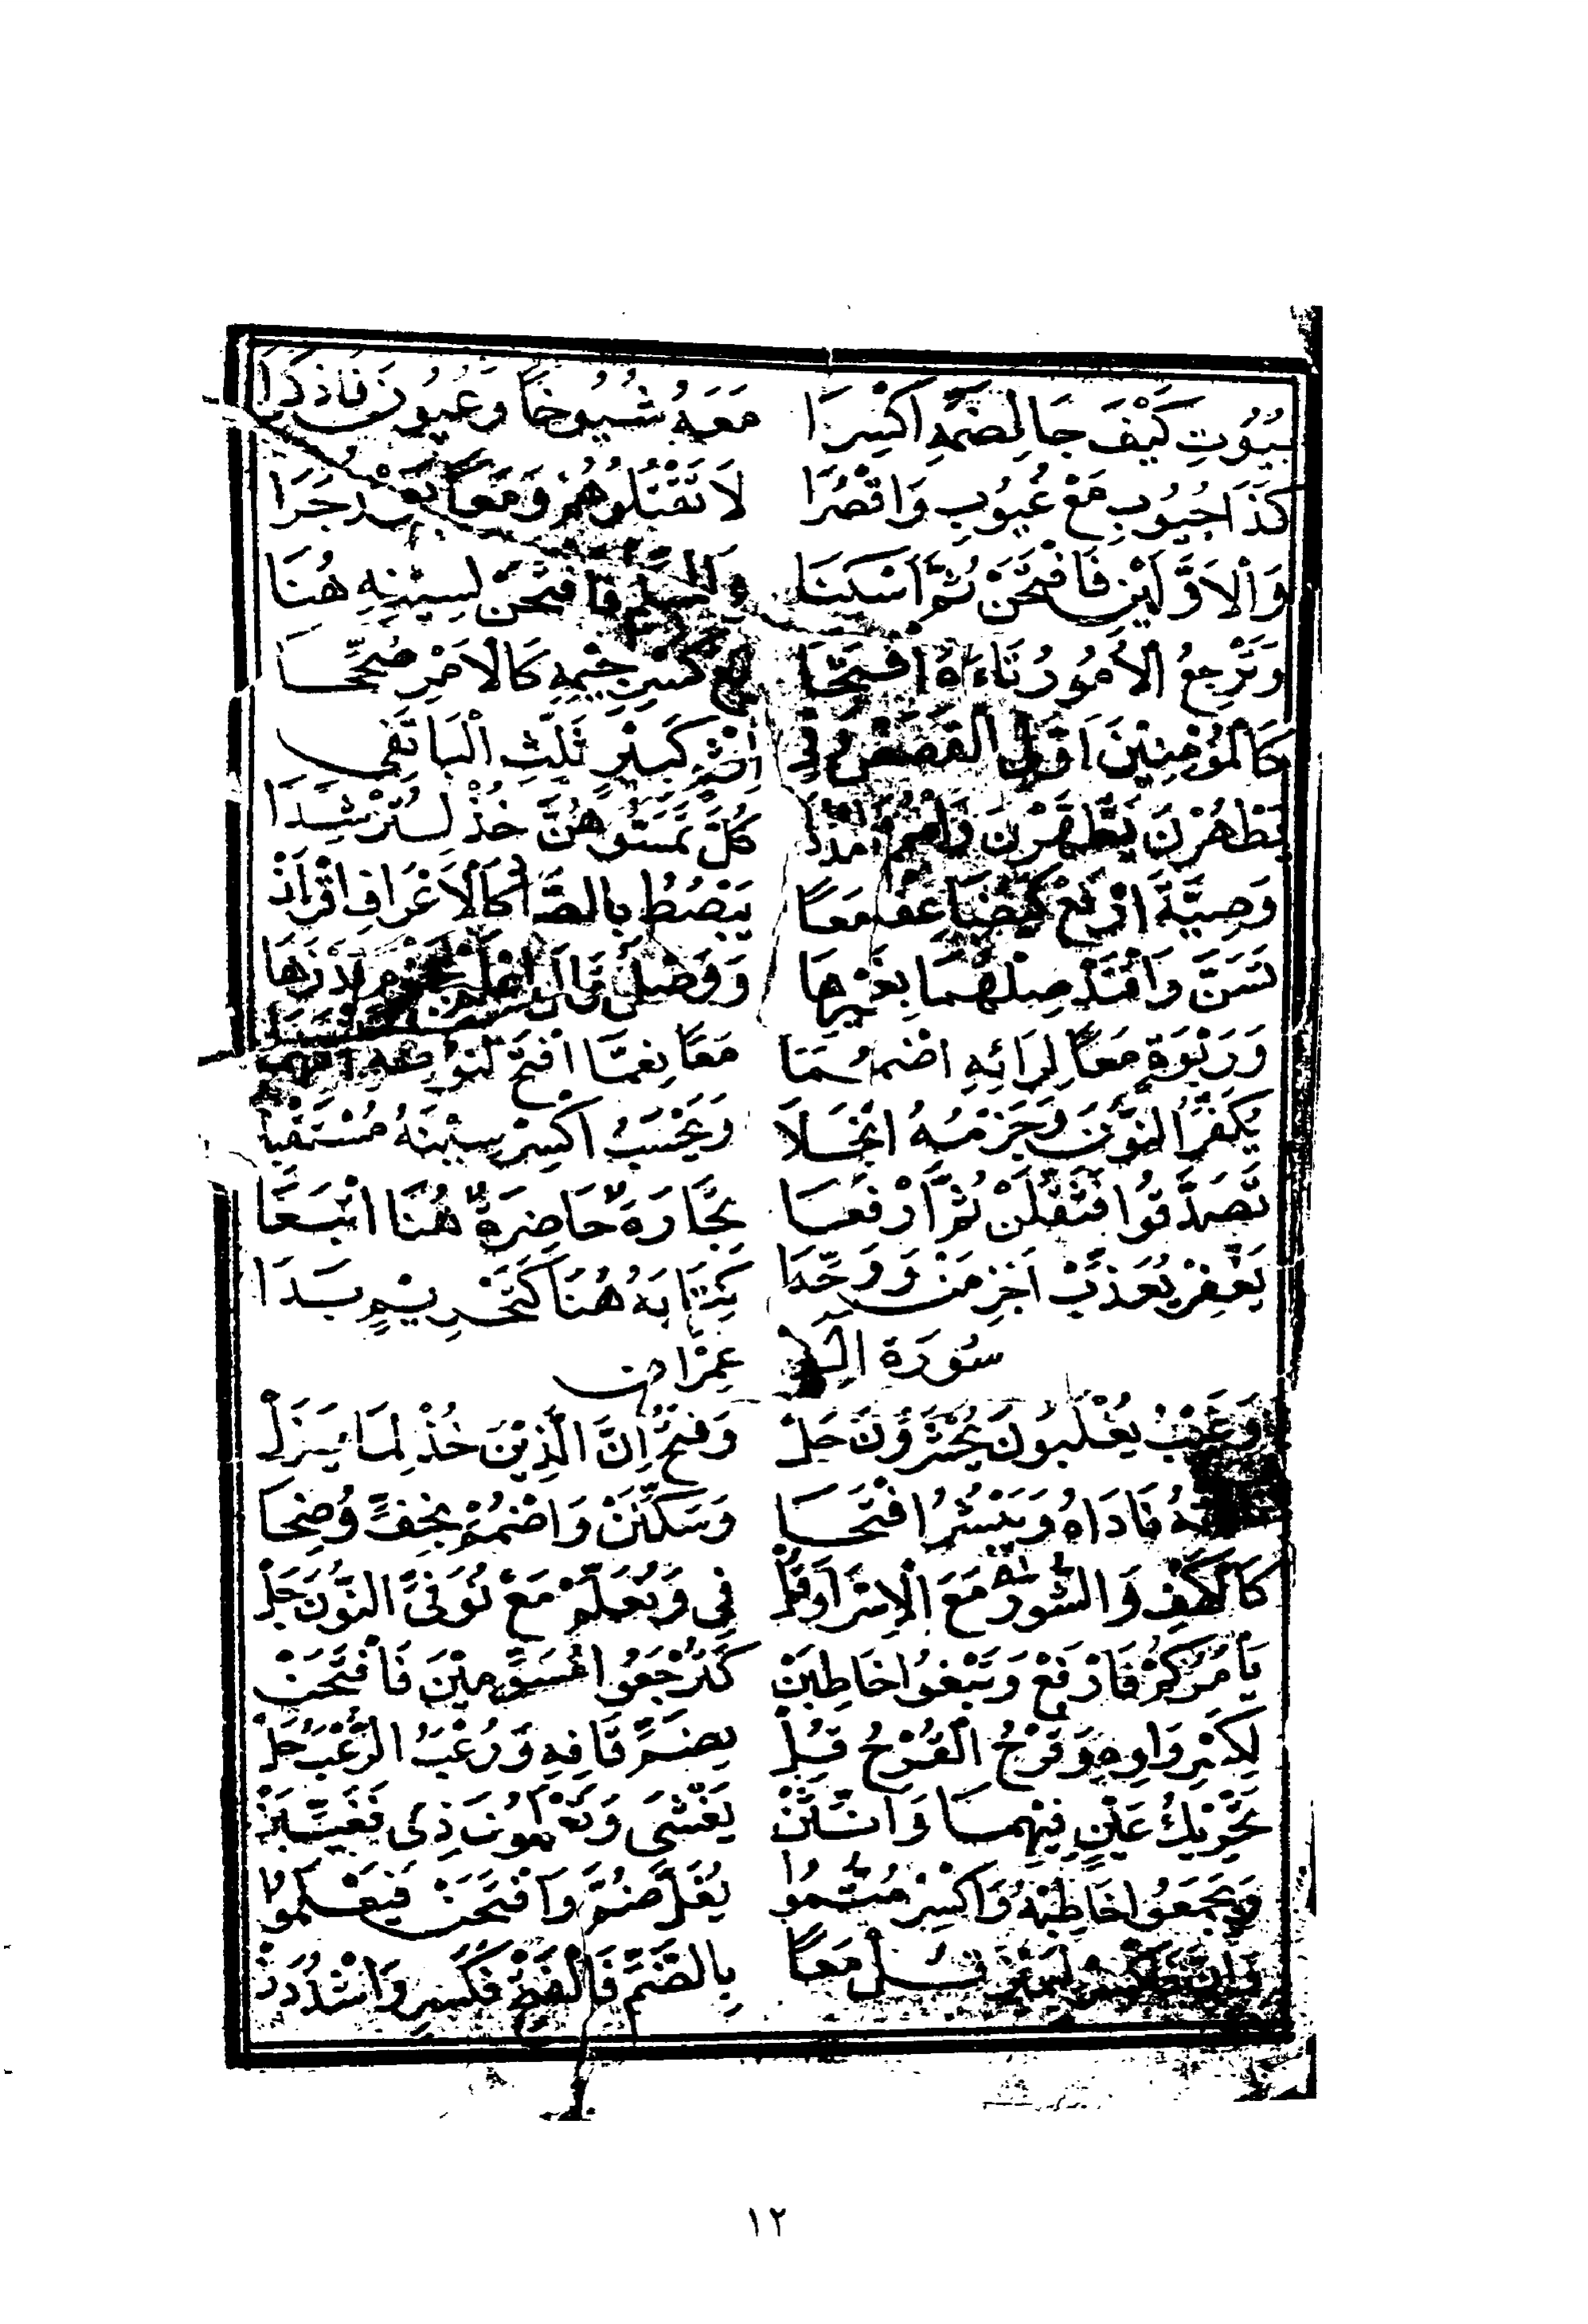 بُيُوتِ كَيْفَ جَا لِضَمِّهِ اكْسِرَا مَعَهُ شُيُوخًا وَعُيُونَ فَاذْكُرَا
كَذَا جُيُوبِ مَعْ عُيُوبِ وَاقْصُرَا لَا تَقْتُلُوهُمْ وَمَعًا بَعْدُ جَرَا
وَالْاَوَّلَيْنِ فَافْتَحَنْ ثُمَّ اَسْكِنَا وَالسِّلْمِ فَافْتَحَنْ لِسِيْنِهِ هُنَا
وَتَرْجِعُ الْأُمُورُ تَاءَهُ افْتَحَا مَعْ كَسْرِ جِيْمِهِ كَالْاَمْرِ صُحِّحَا
كَالْمُؤْمِنِيْنَ اَوَّلِ الْقَصَصْ وَفِي اِثْمٌ كَبِيْرٌ ثَلَّثِ الْبَا تَفِي
يَطْهُرْنَ يَطَّهَّرْنَ وَاضْمُمْ امْدُدَا كُلَّ تَمَسُّوهُنَّ خُذْ لِتُرْشِدَا
وَصِيَّةٌ ارْفَعْ مَعًا يَبْصُطُ بِالصَّادِ كَالْاَعْرَافِ اقْرَأَنْ
تَسَنَّ وَاقْتَدْ صِلْهُمَا بِغَيْرِهَا وَفَصْلِ قَالَ اعْلَمْ بِجَزْمٍ
وَرَبْوَةٍ مَعًا لِرَائِهِ اضْمُمَنَا مَعًا نِعِمَّا افْتَحْ لِنُونِهِ
يُكَفِّرُ النُّونَ وَجَزْمُهُ انْجَلَا وَيَحْسَبُ اكْسِرْ سِيْنَهُ مُسْتَقْبَلَا
تَصَدَّقُوا فَثَقِّلَنْ ثُمَّ ارْفَعَا تِجَارَةٌ حَاضِرَةٌ هُنَا اتْبَعَا
يَغْفِرْ يُعَذِّبْ اَجْزِمَنْ وَوَحِّدَا كِتَابَهُ هُنَا كَتَحْرِيْمٍ بَدَا
سُورَةُ اٰلِ عِمْرَانَ
وَغَيْبُ يُغْلَبُونَ يُحْشَرُونَ حَلْ وَفَتْحُ اِنَّ الَّذِيْنَ خُذْ لِمَا نَزَلْ
فَادَاهُ وَيَبْشُرُ افْتَحَا وَسَكِّنَنْ وَاضْمُمْ بِخِفٍّ وُضِحَا
كَالْكَهْفِ وَالشُّورٰى مَعَ الْاِسْرَا وَقُلْ فِي وَيُعَلِّمْ مَعْ نُوَفِّي النُّونَ حَلْ
يَأْمُرَكُمْ فَارْفَعْ وَتَبْغُوا خَاطِبَنْ كَتُرْجَعُوا مُسَوَّمِيْنَ فَافْتَحَنْ
لِكَسْرِ وَاوِهِ وَقُرْحُ الْقُرْحُ قُلْ بِضَمِّ قَافِهِ وَرُعْبُ الرُّعْبُ حَلْ
تَحْرِيْكُ عَيْنٍ فِيْهِمَا وَاَنِّثَنْ يَغْشٰى وَيَعْمَلُونَ ذِي فَغَيِّبَنْ
وَيَجْمَعُوا خَاطِبْهُ وَاكْسِرْ مُتُّمُوا يُغَلَّ ضُمَّ وَافْتَحَنْ فَيُعْلَمُوا
مَعًا بِالضَّمِّ فَالْفَتْحِ فَكَسْرٍ وَاشْدُدَنْ
١٢